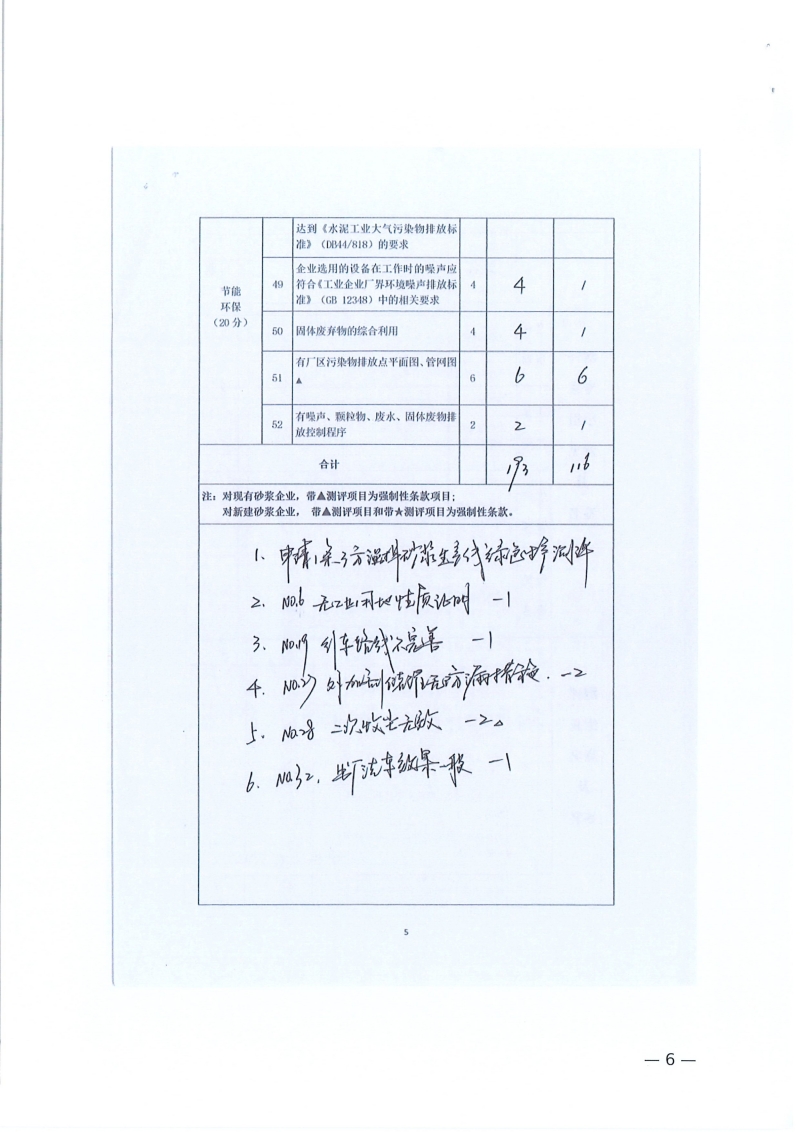 达到《水泥工业大气污染物排放标
准》（DB44/818）的要求
节能
环保
（20 分）
49
企业选用的设备在工作时的噪声应
符合《工业企业厂界环境噪声排放标
准》（GB 12348）中的相关要求
4
4
/
50
固体废弃物的综合利用
4
4
/
51
有厂区污染物排放点平面图、管网图
▲
6
6
6
52
有噪声、颗粒物、废水、固体废物排
放控制程序
2
2
/
合计
193
116
注：对现有砂浆企业，带▲测评项目为强制性条款项目；
对新建砂浆企业， 带▲测评项目和带★测评项目为强制性条款。
1、申请1条 湿拌砂浆生产线绿色
2. No.6 无工业用地性质证明 -1
3. No.19 路线不完善 -1
4. No.27 -2
5. No.28 二次收尘无效 -2
6. No.32. 出厂洗车效果一般 -1
5
— 6 —